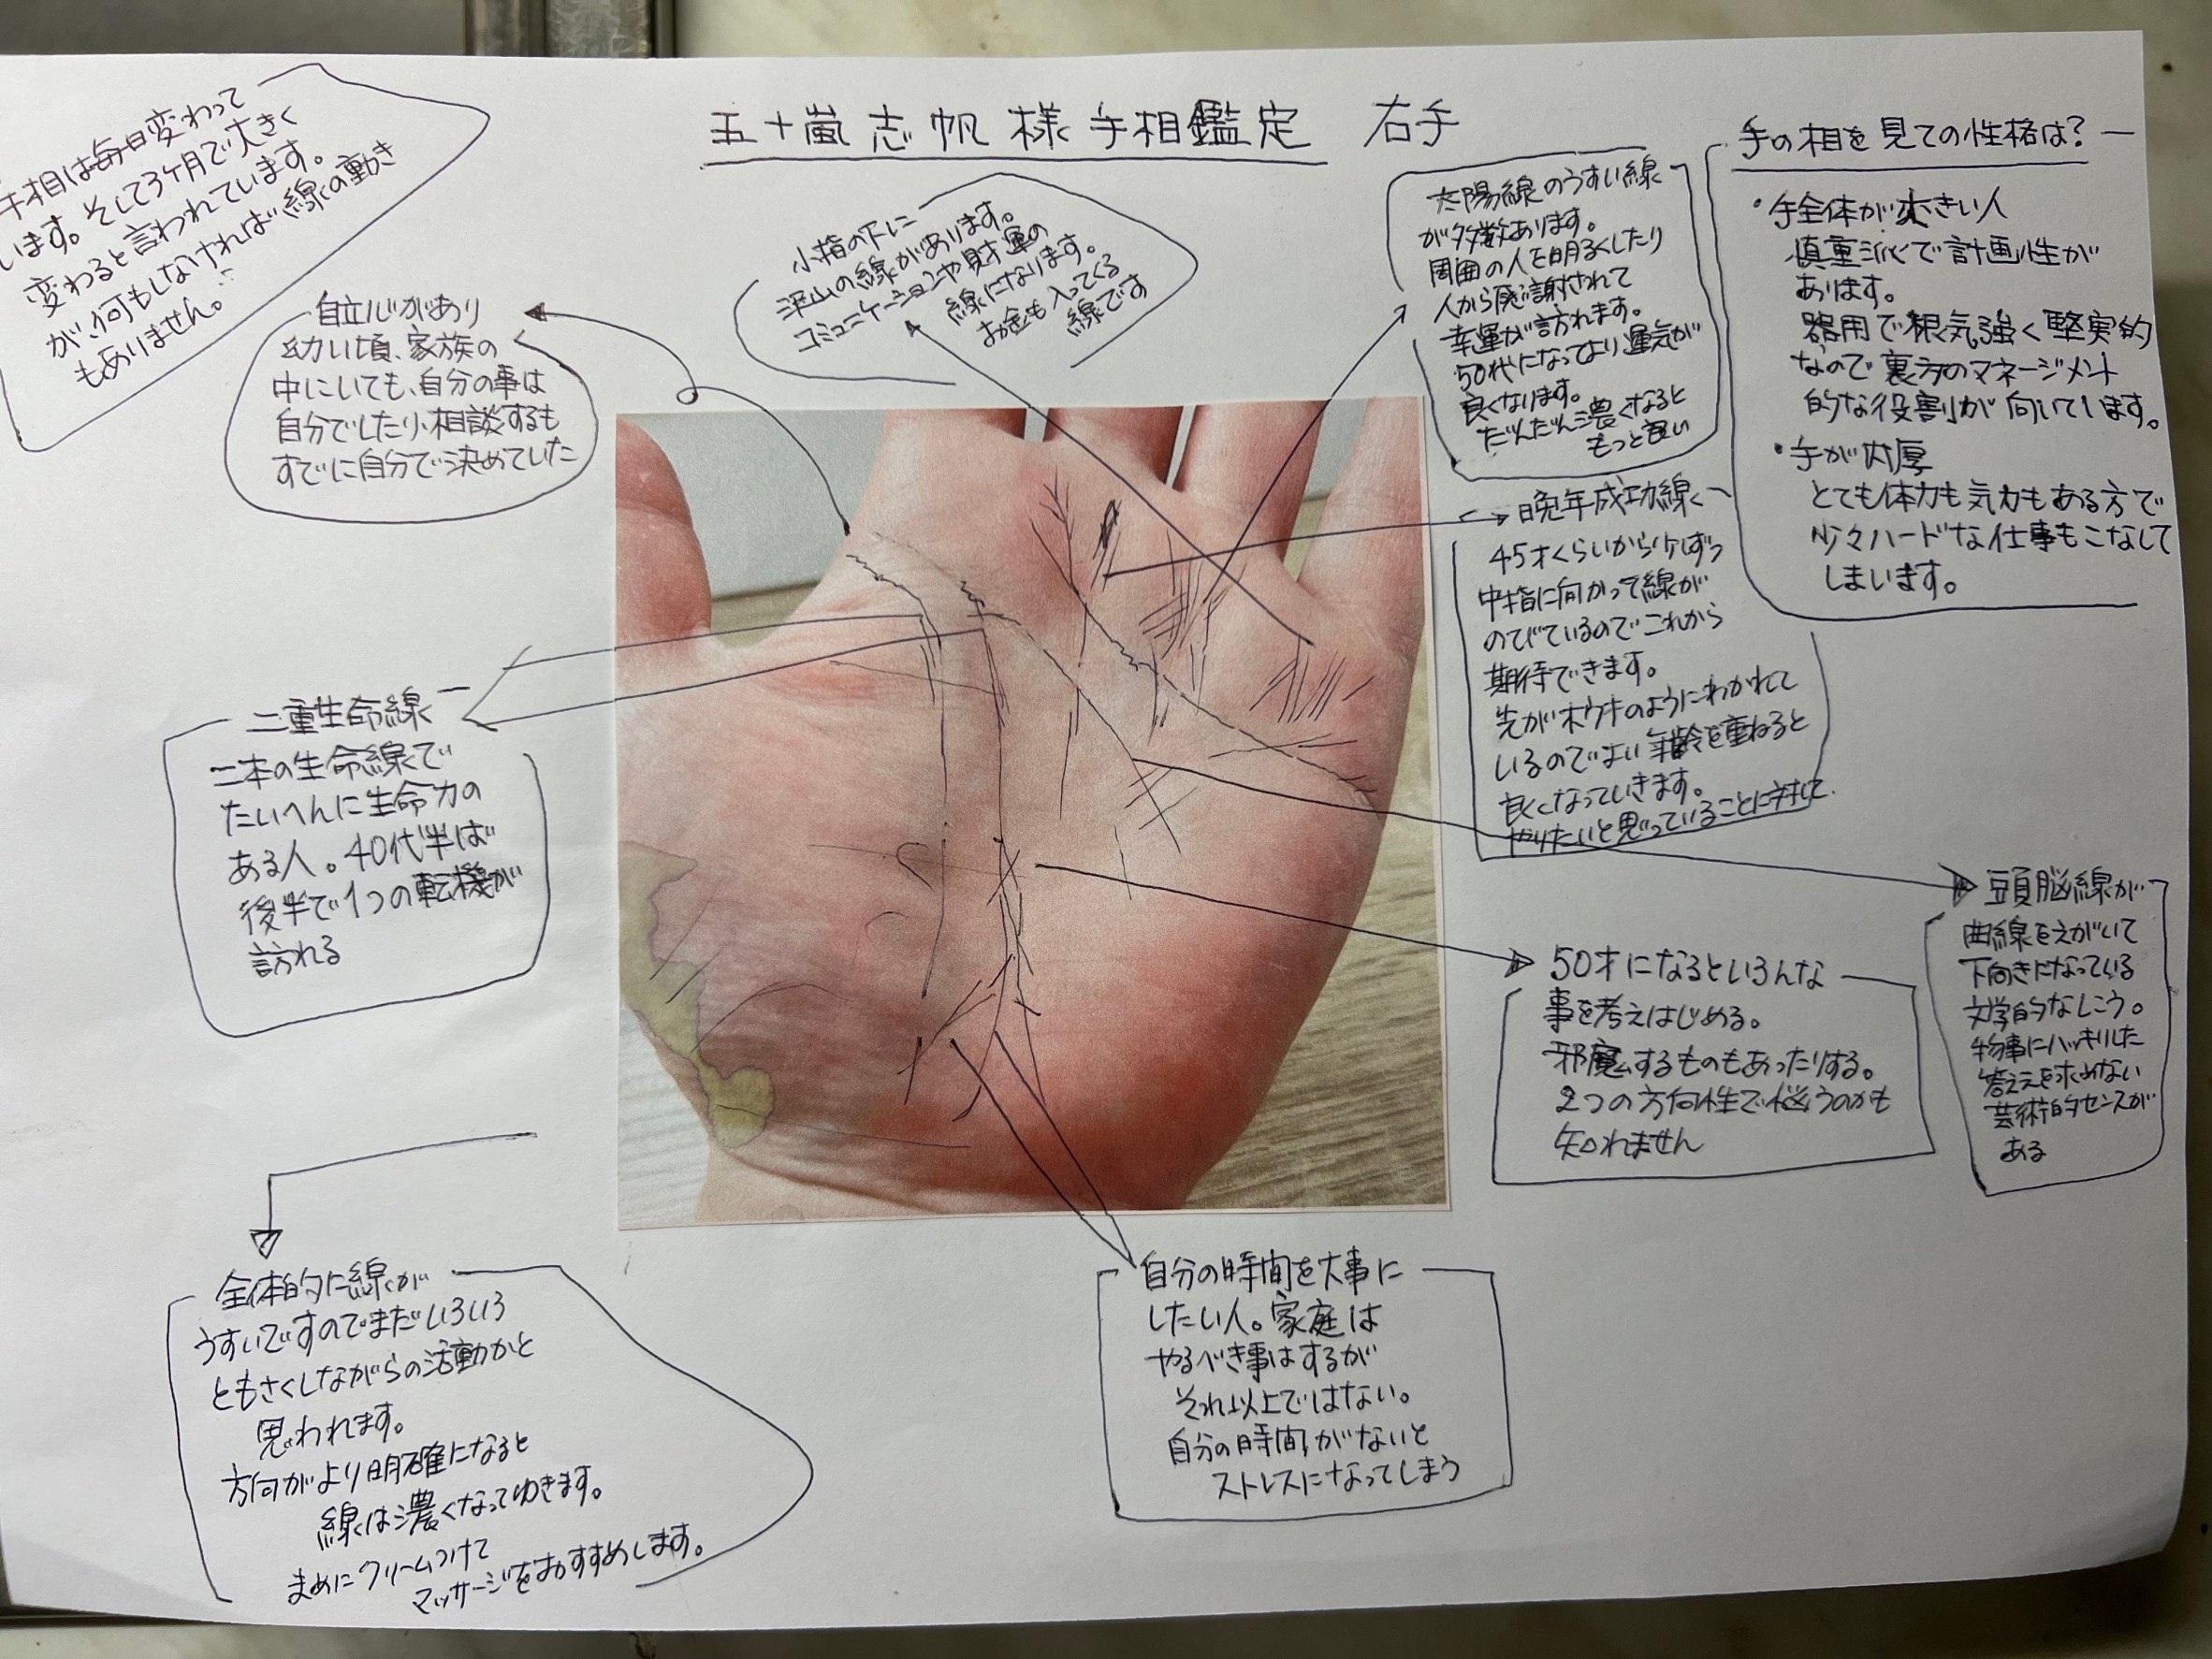 五十嵐志帆様手相鑑定 右手
手相は毎日変わって
います。そして3ヶ月で大きく
変わると言われています。
が、何もしなければ線の動き
もありません。
自立心があり
幼い頃、家族の
中にいても、自分の事は
自分でしたり相談するも
すでに自分で決めていた
小指の下に
沢山の線があります。
コミュニケーションや財運の
線になります。
お金も入ってくる
線です
太陽線のうすい線
が多数あります。
周囲の人を明るくしたり
人から感謝されて
幸運が訪れます。
50代になってより運気が
良くなります。
だんだん濃くなると
もっと良い
手の相を見ての性格は?
・手全体が大きい人
慎重派で計画性が
あります。
器用で根気強く堅実的
なので裏方のマネージメント
的な役割が向いています。
・手が肉厚
とても体力も気力もある方で
少々ハードな仕事もこなして
しまいます。
晩年成功線
45才くらいから少しずつ
中指に向かって線が
のびているのでこれから
期待できます。
先がホウキのようにわかれて
いるのでよい年齢を重ねると
良くなっていきます。
やりたいと思っていることに対して
二重生命線
二本の生命線で
たいへんに生命力の
ある人。40代半ば
後半で1つの転機が
訪れる
頭脳線が
曲線をえがいて
下向きになっている
文学的なしこう。
物事にハッキリした
答えを求めない
芸術的センスが
ある
50才になるといろんな
事を考えはじめる。
邪魔するものもあったりする。
2つの方向性で悩うのかも
知れません
全体的に線が
うすいですのでまだいろいろ
ともさくしながらの活動かと
思われます。
方向がより明確になると
線は濃くなってゆきます。
まめにクリームつけて
マッサージをおすすめします。
自分の時間を大事に
したい人。家庭は
やるべき事はするが
それ以上ではない。
自分の時間がないと
ストレスになってしまう